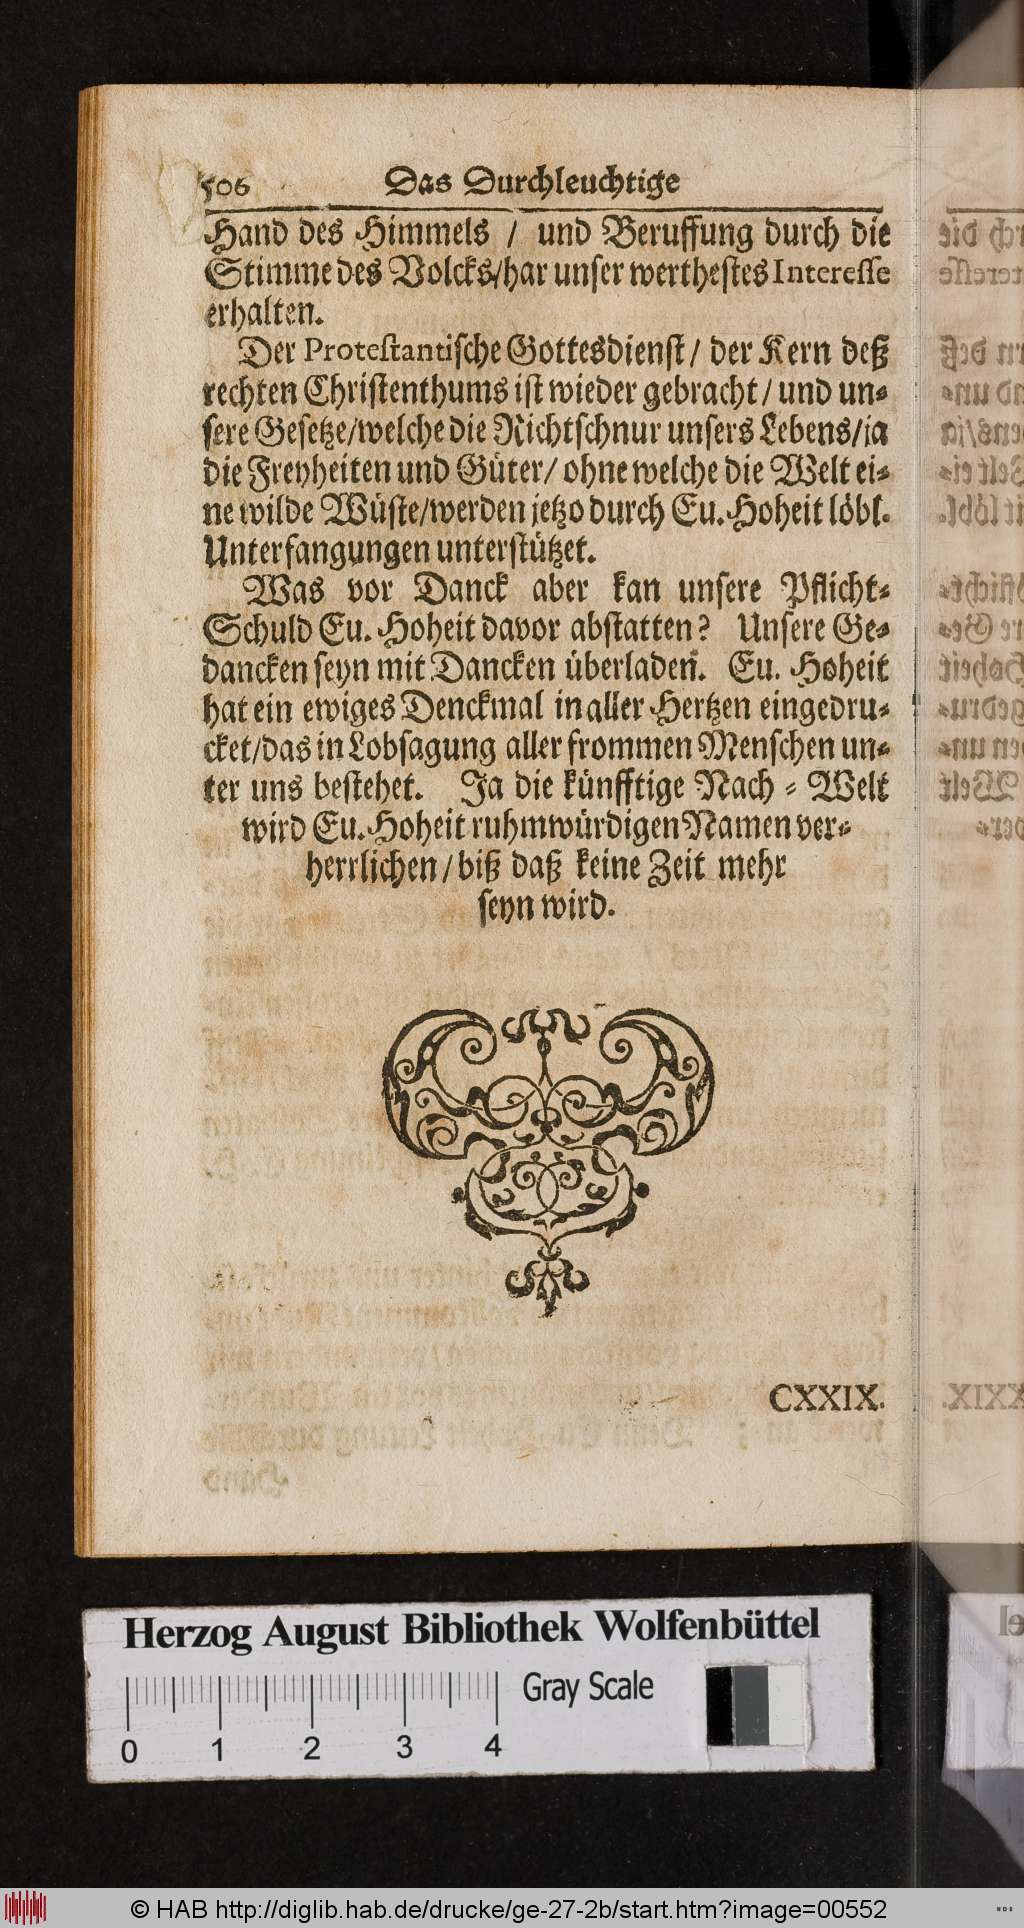 506 Das Durchleuchtige
Hand des Himmels / und Beruffung durch die
Stimme des Volcks/har unser werthestes Interesse
erhalten.
Der Protestantische Gottesdienst/ der Kern deß
rechten Christenthums ist wieder gebracht / und un-
sere Gesetze/welche die Richtschnur unsers Lebens/ja
die Freyheiten und Güter/ ohne welche die Welt ei-
ne wilde Wüste/werden jetzo durch Eu. Hoheit löbl.
Unterfangungen unterstützet.
Was vor Danck aber kan unsere Pflicht-
Schuld Eu. Hoheit davor abstatten? Unsere Ge-
dancken seyn mit Dancken überladen. Eu. Hoheit
hat ein ewiges Denckmal in aller Hertzen eingedru-
cket/das in Lobsagung aller frommen Menschen un-
ter uns bestehet. Ja die künfftige Nach-Welt
wird Eu. Hoheit ruhmwürdigen Namen ver-
herrlichen / biß daß keine Zeit mehr
seyn wird.
CXXIX.
Herzog August Bibliothek Wolfenbüttel
Gray Scale
0 1 2 3 4
© HAB http://diglib.hab.de/drucke/ge-27-2b/start.htm?image=00552